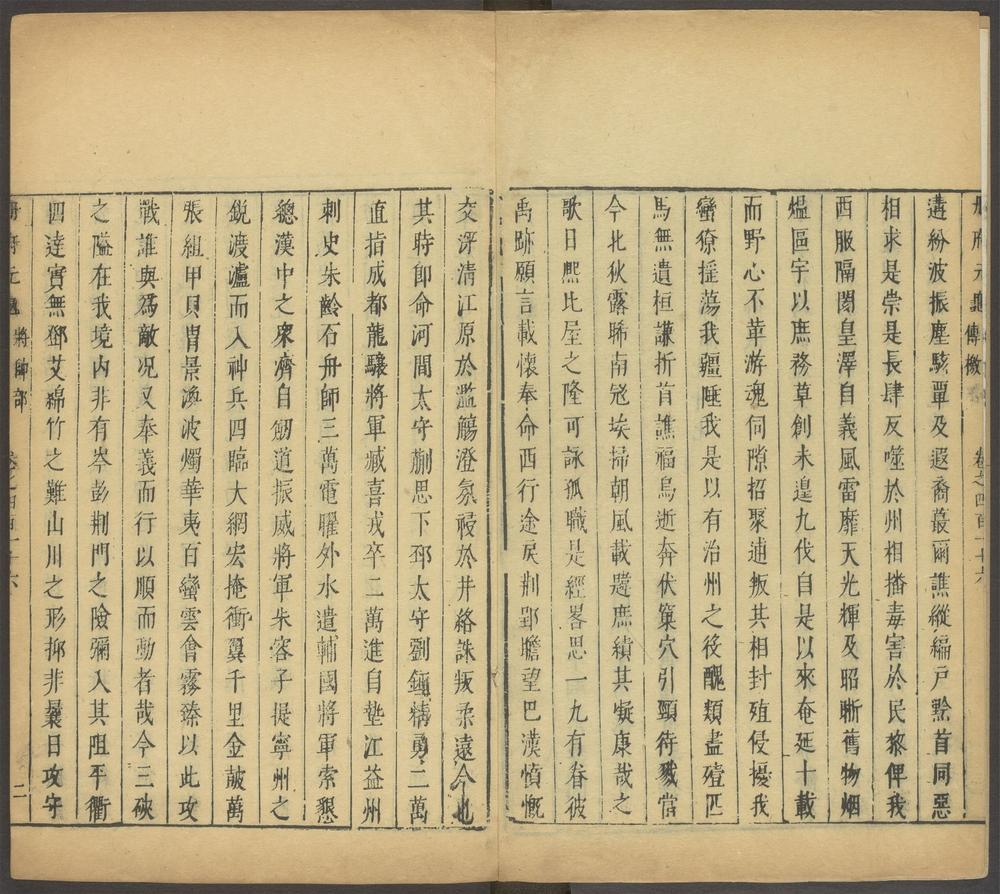 册府元龜傳檄 卷之四百一十六
遘紛波振塵駭覃及遐裔蕞爾譙縱編戸黔首同惡
相求是崇是長肆反噬於州相播毒害於民黎俾我
西服隔閡皇澤自義風雷靡天光輝及昭晰舊物烟
煴區宇以庶務草創未遑九伐自是以來奄延十載
而野心不革游魂伺隙招聚逋叛其相封殖侵擾我
蠻獠揺蕩我疆陲我是以有治州之後醜類盡殪匹
馬無遺桓謙折首譙福鳥逝奔伏窠穴引頸待戮當
今北狄露晞南冦埃掃朝風載韙庶績其凝康哉之
歌日熈比屋之隆可詠孤職是經畧思一九有眷彼
禹跡願言載懷奉命西行途戾荆郢瞻望巴漢憤慨
交深清江原於濫觴澄氛祲於井絡誅叛柔遠今也
其時卽命河間太守蒯思下邳太守劉鍾精勇二萬
直指成都龍驤將軍臧喜戎卒二萬進自墊江益州
刺史朱齡石舟師三萬電曜外水遣輔國將軍索懇
總漢中之衆濟自劒道振威將軍朱容子提寧州之
銳渡瀘而入神兵四臨大網宏掩衝翼千里金皷萬
張組甲貝胄景渙波燭華夷百蠻雲會霧臻以此攻
戰誰與爲敵况又奉義而行以順而動者哉今三硤
之隘在我境内非有岑彭荆門之險彌入其阻平衢
四達實無鄧艾綿竹之難山川之形抑非曩日攻守
册府元龜將帥部 卷之四百一十六 二